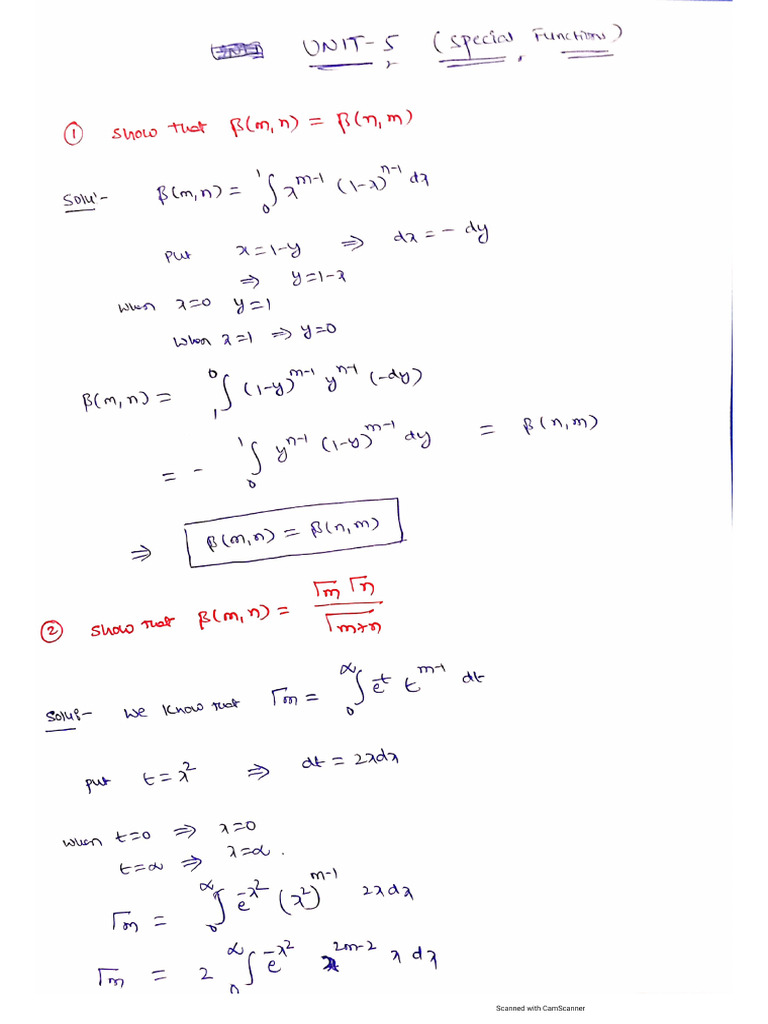 UNIT-5 (Special Functions)
① Show that β(m,n) = β(n,m)
Solu:- β(m,n) = ∫₀¹ x^(m-1) (1-x)^(n-1) dx
put x=1-y ⇒ dx = - dy
⇒ y=1-x
when x=0 y=1
when x=1 ⇒ y=0
β(m,n) = ∫₁⁰ (1-y)^(m-1) y^(n-1) (-dy)
= - ∫₀¹ y^(n-1) (1-y)^(m-1) dy = β(n,m)
⇒ β(m,n) = β(n,m)
② Show that β(m,n) = Γm Γn / Γm+n
Solu:- We know that Γm = ∫₀^∞ e^(-t) t^(m-1) dt
put t=x² ⇒ dt = 2xdx
when t=0 ⇒ x=0
t=∞ ⇒ x=∞.
Γm = ∫₀^∞ e^(-x²) (x²)^(m-1) 2xdx
Γm = 2 ∫₀^∞ e^(-x²) x^(2m-2) x dx
Scanned with CamScanner